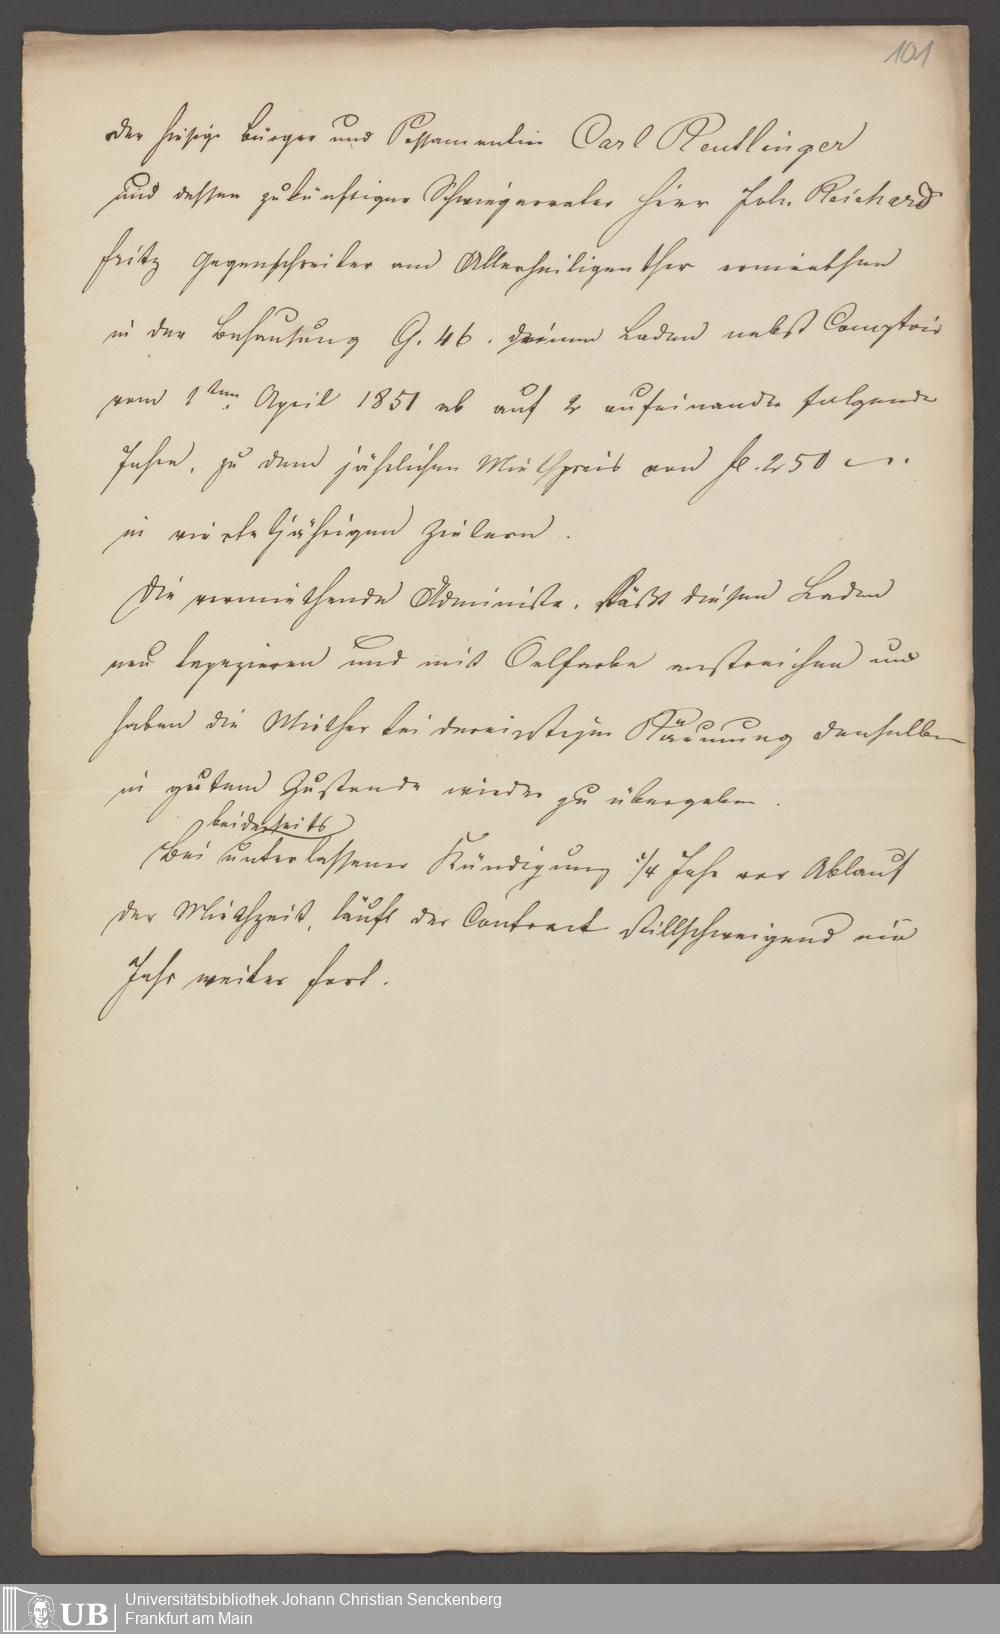 101
Der hiesige Bürger und Possamentier Carl Reutlinger
und dessen zukünftiger Schwiegervater Herr Joh. Reichard
Fritz Gegenschreiber am Allerheiligenthor ermiethen
in der Behausung G. 46. einen Laden nebst Comptoir
vom 1ten April 1851 ab auf 2 aufeinander folgende
Jahre, zu dem jährlichen Miethpreis von fl. 250 —.
in vierteljährigen Zielern.
Die vermiethende Administr. läßt diesen Laden
neu tapezieren und mit Oelfarbe anstreichen und
haben die Miether bei dereinstigen Räumung denselben
in gutem Zustande wieder zu übergeben.
beiderseits
Bei unterlassener Kündigung 1/4 Jahr vor Ablauf
der Miethzeit, läuft der Contract stillschweigend ein
Jahr weiter fort.
UB
Universitätsbibliothek Johann Christian Senckenberg
Frankfurt am Main